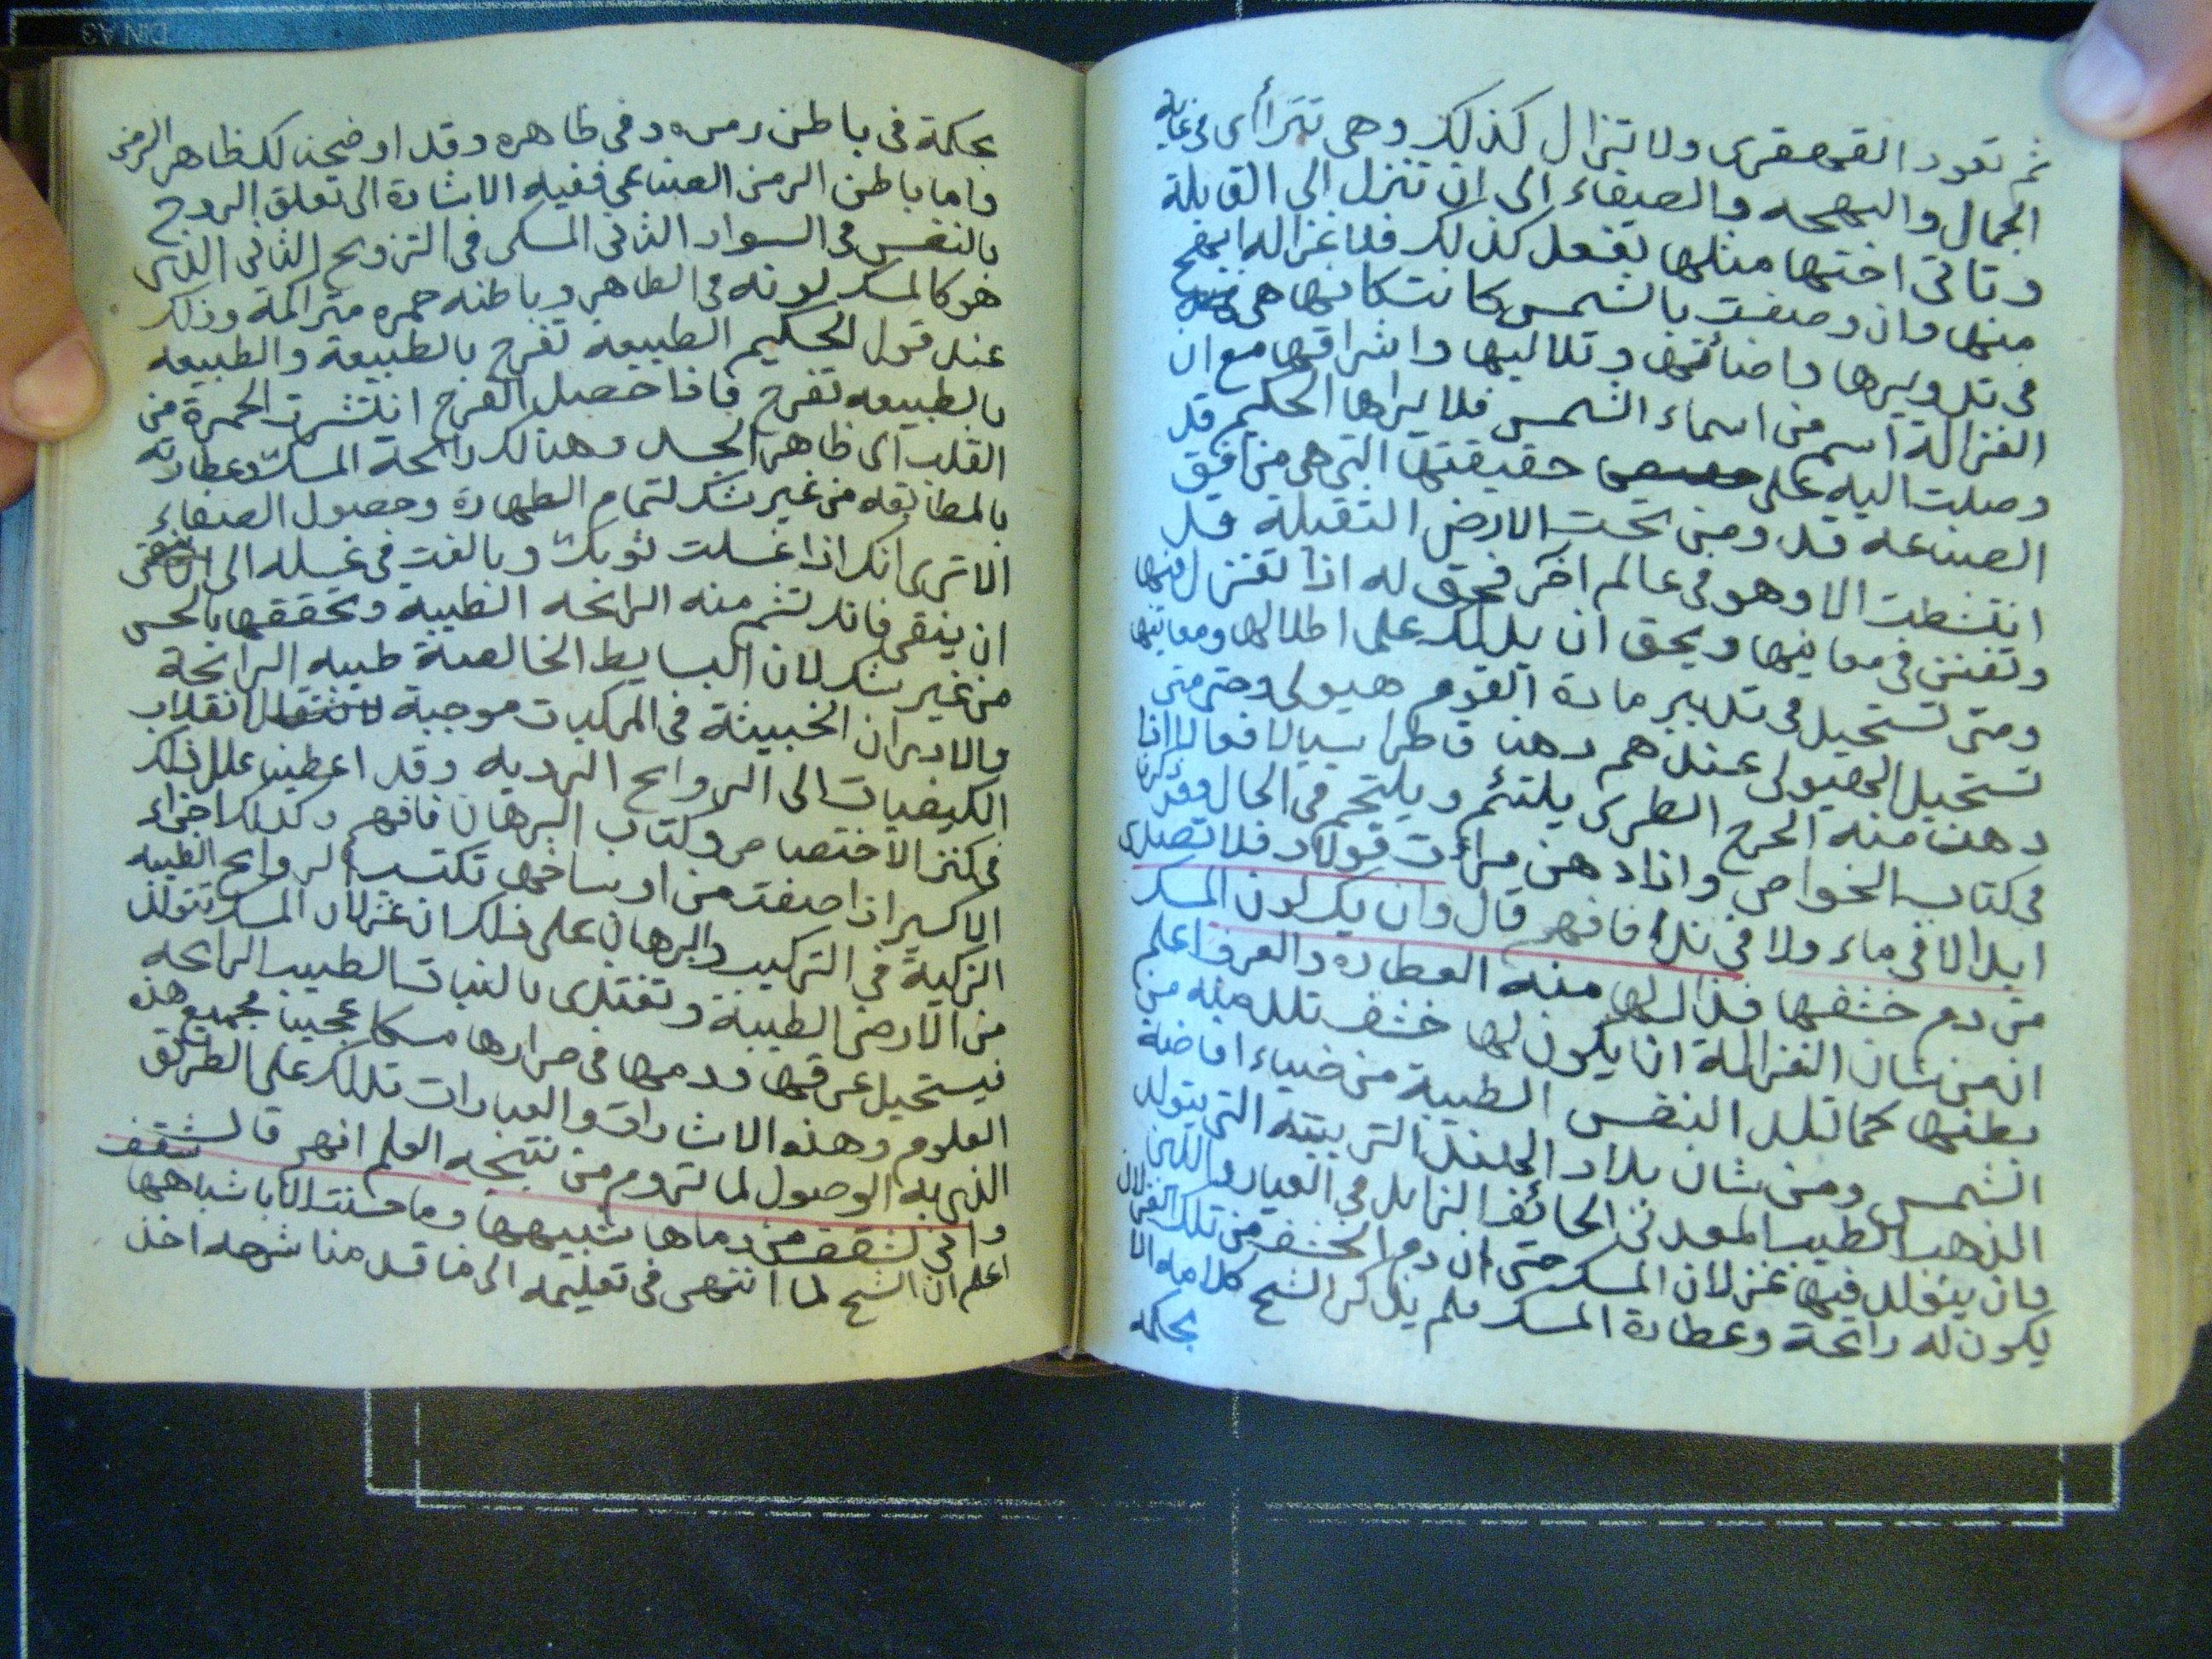 ثم تعود القهقرى ولا تزال كذلك وهى تترأاى فى غاية
الجمال والبهجه والصفاء الى ان تنزل الى القابلة
وتاتى اختها مثلها تفعل كذلك فلا غزاله ابهج
منها وان وصفت بالشمس كانت كانها هى
فى تدويرها واضائتها وتلاليها واشراقها مع ان
الغزالة اسم من اسماء الشمس فلا يراها الحكيم قد
وصلت اليه على حقيقتها التى هى من افق
الصناعه قد ومن تحت الارض الثقيلة قد
انتشطت الا وهو فى عالم اخر فحق له اذا تغزل فيها
وتفنن فى معانيها ويحق ان على اطلالها ومعانيها
ومتى تستحيل فى تدبير مادة القوم هيولى وحتى متى
تستحيل الهيولى عندهم دهنا قاطرا سيالا فعالا اذا
دهنت منه الجرح الطرى يلتئم ويلتحم فى الحال وقد ذكرت
فى كتاب الخواص واذا دهن مراءت فولاد فلا تصدى
ابدا لا فى ماء ولا فى ندا فافهم قال وان يك لون المسك
من دم خشفها فذا لها منه العطاره والعرف اعلم
ان من شان الغزالة ان يكون لها خشف تلد مثله من
بطنها كما تلد النفس الطيبة من ضياء افاضة
الشمس ومن شان بلاد الهند التربيته التى يتولد
الذهب الطيب المعدنى الحائف الزايد فى العيار والذى
وان يتولد فيها غزلان المسك حتى ان دم الخشف من تلك الغزلان
يكون له رائحة وعطارة المسك فلم يذكر الشيخ كلامه الا
بحكمه
بحكمة فى باطن رمزه وفى ظاهره وقد اوضحنا لك ظاهر الرمز
واما باطن الرمز الصناعى ففيه الاشارة الى تعلق الروح
بالنفس فى السواد الثانى المسكى فى التزويج الثانى الذى
هو كالمسك لونه فى الظاهر وباطنه حمره متراكمة وذلك
عند قول الحكيم الطبيعة تفرح بالطبيعة والطبيعه
بالطبيعه تفرح فاذا حصل الفرح انتشرت الحمرة من
القلب الى ظاهر الجسد وهنالك رائحة المسك وعطارته
بالمطابقه من غير شك لتمام الطهارة وحصول الصفاء
الا ترى انك اذا غسلت ثوبك وبالغت فى غسله الى
ان ينقى فانك تشم منه الرائحه الطيبة وتحققها بالحس
من غير شك لان البسايط الخالصة طيبه الرائحة
والادران الخبيثة فى المركبات موجبة لانقلاب
الكيفيات الى الروايح الرديه وقد اعطينا علل ذلك
فى كنز الاختصاص وكتاب البرهان فافهم وكذلك اجزاء
الاكسير اذا صفت من اوساخها تكتسب الروايح الطيبه
الزكية فى التركيب والبرهان على ذلك ان غزلان المسك تتولد
من الارض الطيبة وتغتذى بالنبات الطيب الرائحه
فيستحيل عرقها ودمها فى صرارها مسكا عجيبا فجميع هذه
العلوم وهذه الاشارات والعبارات تدلك على الطريق
الذى به الوصول لما تروم من نتيجه العلم افهم قال
وانى لشقف من دماها شبيهها وما حسنت الا باشباهها
اعلم ان الشيخ لما انتهى فى تعليمه الى ما قدمنا شرحه اخذ